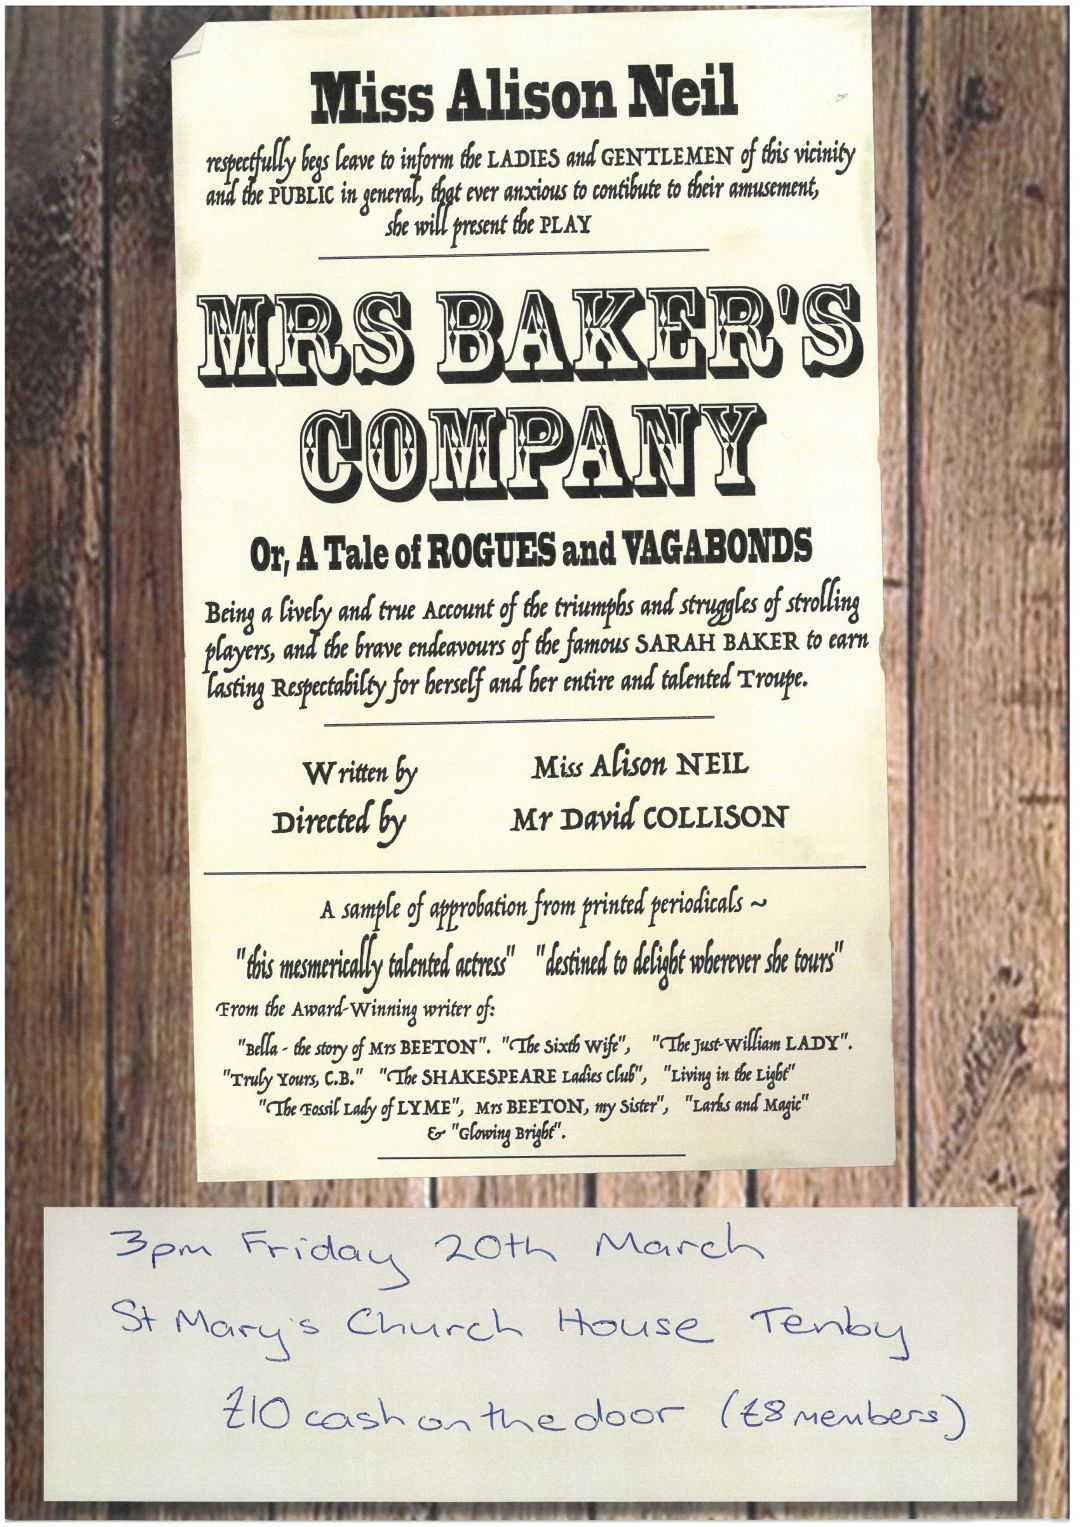 Miss Alison Neil
respectfully begs leave to inform the LADIES and GENTLEMEN of this vicinity
and the PUBLIC in general, that ever anxious to contibute to their amusement,
she will present the PLAY
MRS BAKER'S
COMPANY
Or, A Tale of ROGUES and VAGABONDS
Being a lively and true Account of the triumphs and struggles of strolling
players, and the brave endeavours of the famous SARAH BAKER to earn
lasting Respectabilty for herself and her entire and talented Troupe.
Written by Miss Alison NEIL
Directed by Mr David COLLISON
A sample of approbation from printed periodicals ~
"this mesmerically talented actress" "destined to delight wherever she tours"
From the Award-Winning writer of:
"Bella - the story of Mrs BEETON". "The Sixth Wife", "The Just-William LADY".
"Truly Yours, C.B." "The SHAKESPEARE Ladies Club", "Living in the Light"
"The Fossil Lady of LYME", Mrs BEETON, my Sister", "Larks and Magic"
& "Glowing Bright".
3pm Friday 20th March
St Mary's Church House Tenby
£10 cash on the door (£8 members)